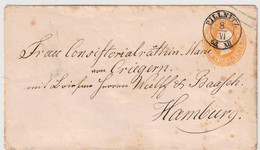 PILLNITZ
8
VI
Frau Consistorialräthin Marie
von Criegern
mit Briefen Herren Wulff & Baasch
Hamburg.